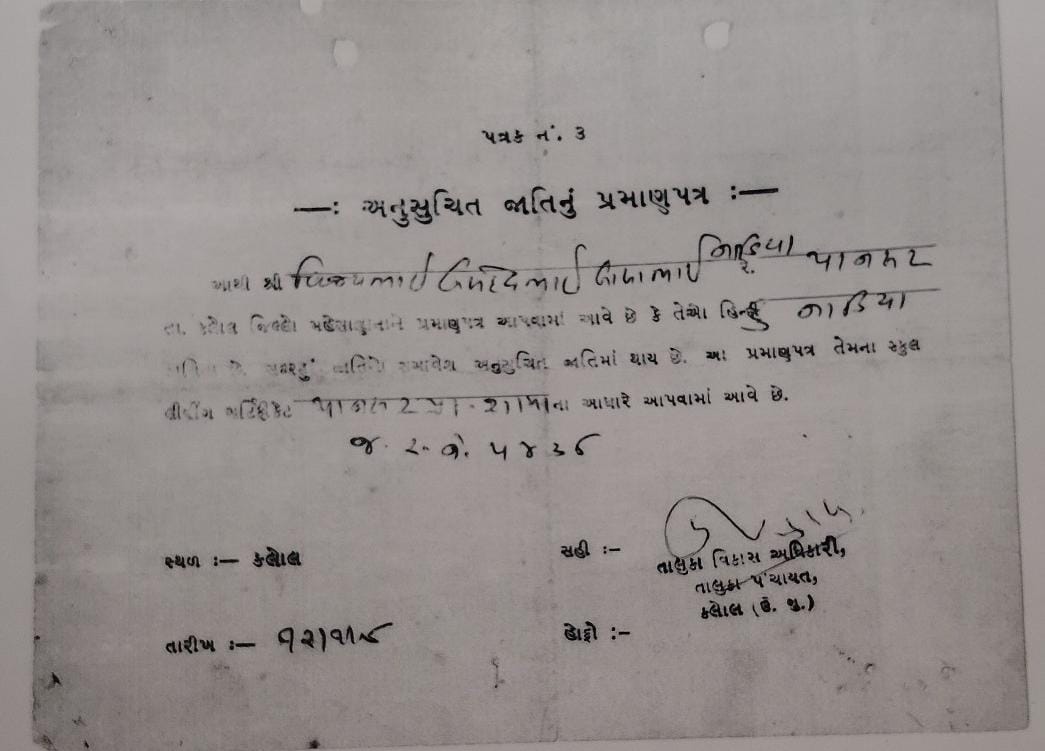 પત્રક નં. ૩
—: અનુસુચિત જાતિનું પ્રમાણપત્ર :—
આથી શ્રી વિજયભાઈ
નાડિયા રે. પાનસર
તા. કલોલ જિલ્લો મહેસાણાનાને પ્રમાણપત્ર આપવામાં આવે છે કે તેઓ હિન્દુ નાડિયા
જાતિનો સમાવેશ અનુસુચિત જાતિમાં થાય છે. આ પ્રમાણપત્ર તેમના સ્કુલ
લીવીંગ સર્ટિફીકેટ પાનસર પ્રા. શાળાના આધારે આપવામાં આવે છે.
જ. ર. નં. ૫૪૩૬
સ્થળ :— કલોલ
સહી :—
તાલુકા વિકાસ અધિકારી,
તાલુકા પંચાયત,
કલોલ (ઉ. ગુ.)
તારીખ :—
હોદ્દો :—